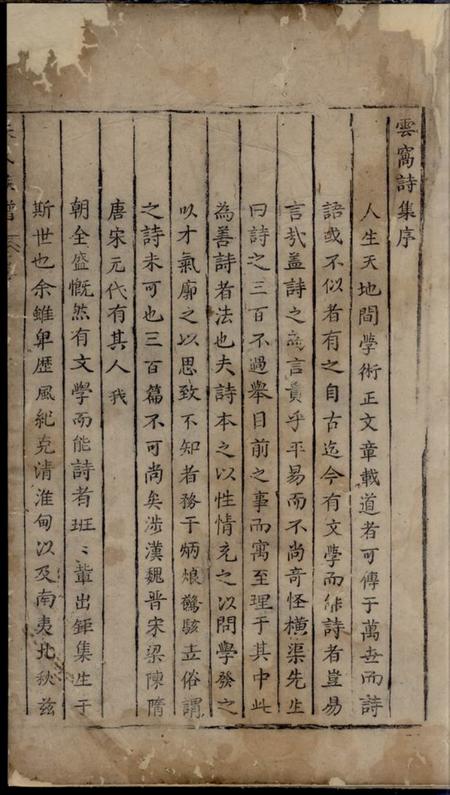 雲窩詩集序
人生天地間學術正文章載道者可傳于萬世而詩
語或不似者有之自古迄今有文學而能詩者豈易
言哉蓋詩之為言貴乎平易而不尚奇怪橫渠先生
曰詩之三百不過舉目前之事而寓至理于其中此
為善詩者法也夫詩本之以性情充之以問學發之
以才氣廓之以思致不知者務于炳烺驚駭世俗謂
之詩未可也三百篇不可尚矣漢魏晉宋梁陳隋
唐宋元代有其人我
朝全盛慨然有文學而能詩者班〻輩出鉅集生于
斯世也余雖卑歷風紀克清淮甸以及南夷北狄茲